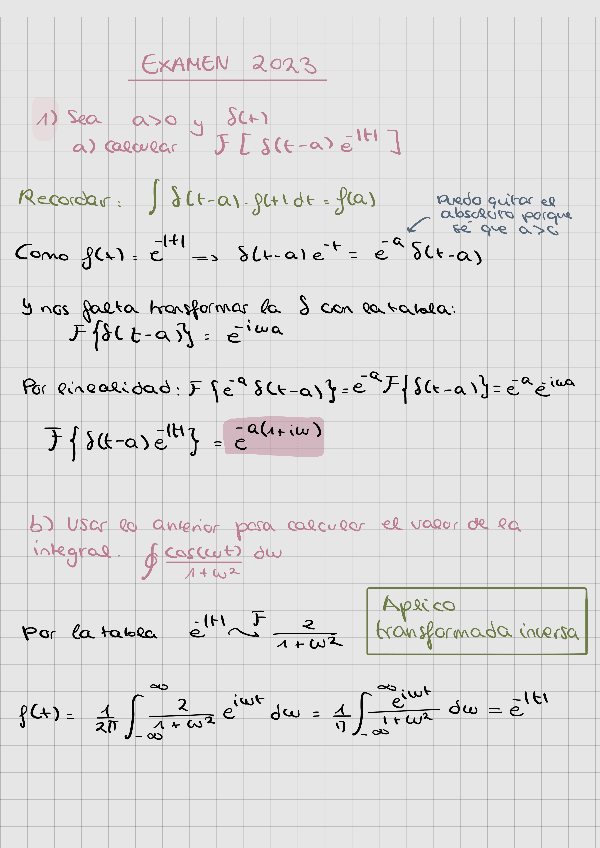 EXAMEN 2023
1) Sea a>0 y δ(t)
a) calcular F[δ(t-a) e^{-|t|}]
Recordar: ∫ δ(t-a)·f(t) dt = f(a)
puedo quitar el
absoluto porque
sé que a>0
Como f(t) = e^{-|t|} ⟹ δ(t-a) e^{-t} = e^{-a} δ(t-a)
Y nos falta transformar la δ con la tabla:
F{δ(t-a)} = e^{-iωa}
Por linealidad: F{e^{-a} δ(t-a)} = e^{-a} F{δ(t-a)} = e^{-a} e^{-iωa}
F{δ(t-a) e^{-|t|}} = e^{-a(1+iω)}
b) Usar lo anterior para calcular el valor de la
integral. ∮ cos(ωt)/(1+ω²) dω
Aplico
transformada inversa
Por la tabla e^{-|t|} ⤳^F 2/(1+ω²)
f(t) = 1/2π ∫_{-∞}^{∞} 2/(1+ω²) e^{iωt} dω = 1/π ∫_{-∞}^{∞} e^{iωt}/(1+ω²) dω = e^{-|t|}